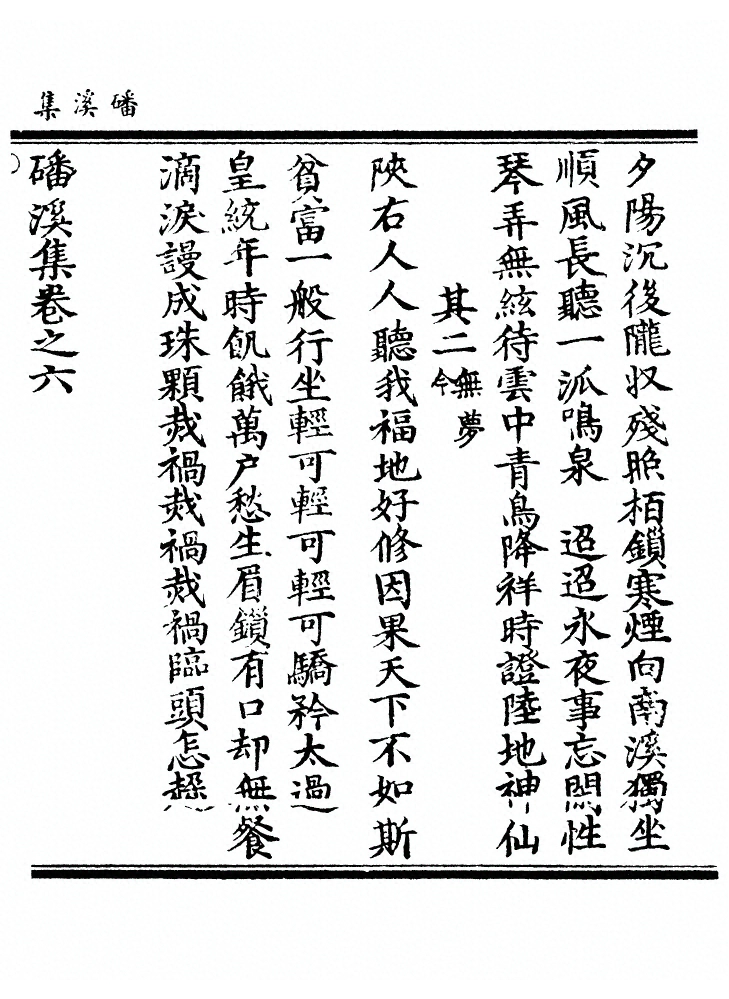 磻溪集
夕陽沉後隴収殘照栢鎖寒煙向南溪獨坐
順風長聽一派鳴泉　迢迢永夜事忘閑性
琴弄無絃待雲中青鳥降祥時證陸地神仙
其二無夢令
陝右人人聽我福地好修因果天下不如斯
貧富一般行坐輕可輕可輕可驕矜太過
皇統年時飢餓萬户愁生眉鎖有口却無餐
滴淚謾成珠顆烖禍烖禍烖禍臨頭怎趓
磻溪集卷之六